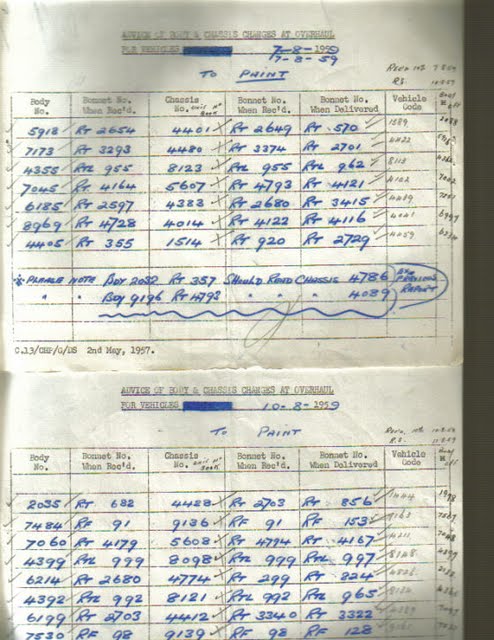 ADVICE OF BODY & CHASSIS CHANGES AT OVERHAUL
FOR VEHICLES 7-8-1959
17-8-59
TO PAINT
Body No. Bonnet No. When Rec'd. Chassis No. Bonnet No. When Rec'd. Bonnet No. When Delivered Vehicle Code
5918 RT 2654 4401 RT 2649 RT 570 1589
7173 RT 3293 4480 RT 3374 RT 2701 4422
4355 RTL 955 8123 RTL 955 RTL 962 8112
7045 RT 4164 5607 RT 4793 RT 4121 4102
6185 RT 2597 4383 RT 2680 RT 3415 4419
8969 RT 4728 4014 RT 4122 RT 4116 4041
4405 RT 355 1514 RT 920 RT 2729 4459
PLEASE NOTE BOY 2052 RT 357 SHOULD READ CHASSIS 4786
" " BOY 9196 RT 4798 " " 4089
ON PREVIOUS REPORT
C.13/CHF/G/DS 2nd May, 1957.
ADVICE OF BODY & CHASSIS CHANGES AT OVERHAUL
FOR VEHICLES 10-8-1959
TO PAINT
Body No. Bonnet No. When Rec'd. Chassis No. Bonnet No. When Rec'd. Bonnet No. When Delivered Vehicle Code
2035 RT 682 4428 RT 2703 RT 856 1444
7484 RF 91 9136 RF 91 RF 153
7060 RT 4179 5608 RT 4794 RT 4167 4211
4399 RTL 999 8098 RTL 999 RTL 997 8148
6214 RT 2680 4774 RT 299 RT 824
4392 RTL 992 8121 RTL 992 RTL 965
6199 RT 2703 4412 RT 3340 RT 3322
7530 RF 98 9139 RF 98 RF 128